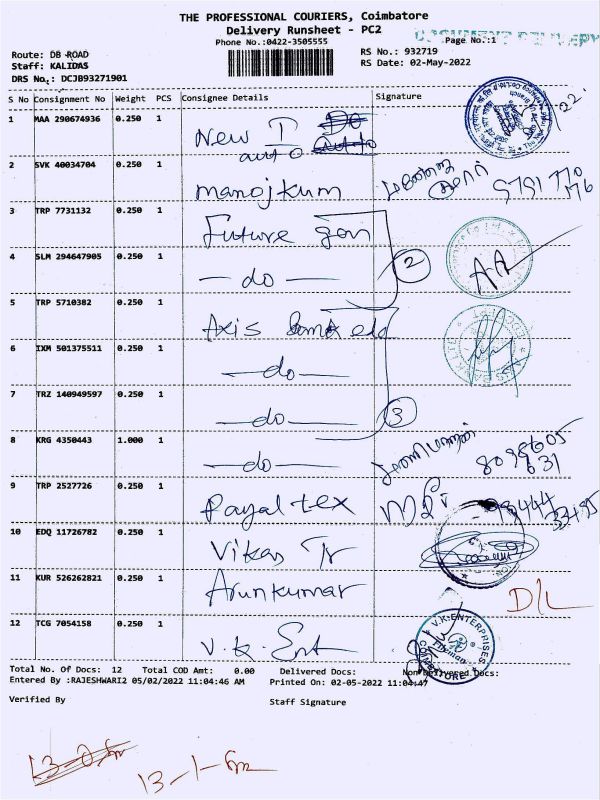 THE PROFESSIONAL COURIERS, Coimbatore
Delivery Runsheet - PC2
DOCUMENT DELIVERY
Phone No.:0422-3505555
Page No.:1
Route: DB ROAD
RS No.: 932719
Staff: KALIDAS
RS Date: 02-May-2022
DRS No.: DCJB93271901
S No Consignment No Weight PCS Consignee Details Signature
1 MAA 290674936 0.250 1 New T auto
2 SVK 40034704 0.250 1 manojkum
3 TRP 7731132 0.250 1 Future gen
4 SLM 294647905 0.250 1 -do- 2 AA
5 TRP 5710382 0.250 1 Axis
6 IXM 501375511 0.250 1 -do-
7 TRZ 140949597 0.250 1 -do- 3
8 KRG 4350443 1.000 1 -do-
9 TRP 2527726 0.250 1 Payal tex
10 EDQ 11726782 0.250 1 Vikas Tr
11 KUR 526262821 0.250 1 Arunkumar D/L
12 TCG 7054158 0.250 1 V.K. Ent V.K.ENTERPRISES COIMBATORE
Total No. Of Docs: 12 Total COD Amt: 0.00 Delivered Docs: Non Delivered Docs:
Entered By :RAJESHWARI2 05/02/2022 11:04:46 AM Printed On: 02-05-2022 11:04:47
Verified By Staff Signature
13-1-